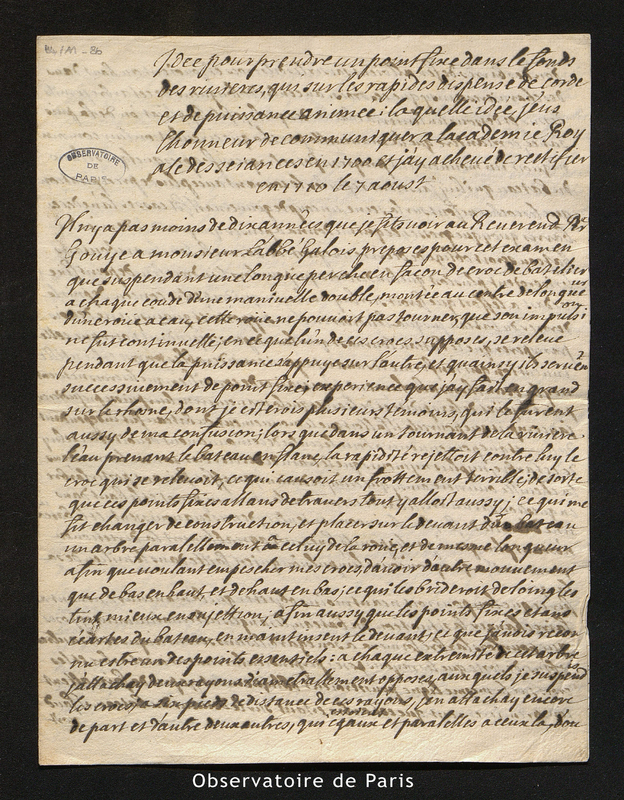 Idee pour prendre un point fixe dans le fonds
des rivieres, qui sur les rapides dispense de corde
et de puissance animée: laquelle idée, j'eus
l'honneur de communiquer a lacademie Roy
ale des seiances en 1700 et j'ay achevé de rectifier
en 1710 le 7 aoust
OBSERVATOIRE
DE
PARIS
Il ny a pas moins de dix années que je fits voir au Reverend Pr
Gouye a monsieur Labbé Galois preposés pour cet examen
que suspendant une longue perche en facon de croc de batelier
a chaque coude dune manivelle double, montée au centre de longue
dune roüe a eau, cette roüe ne pouvoit pas tourner, que son impulsi
ne fut continuelle; en ce que lun de ces crocs supposés, se releve
pendant que la puissance sappuye sur lautre, et quainsy ils servent
successivement de point fixe; experience que jay fait en grand
sur le rhone, dont je citerois plusieurs temoins, qui le furent
aussy de ma confusion; lors que dans un tournant de la riviere
leau prenant le bateau en flanc, la rapidité rejettoit contre luy le
croc qui se relevoit, ce qui causoit un frottement terrible; de sorte
que ces points fixes allans de travers tout y alloit aussy; ce qui me
fit changer de construction, et placer sur le devant du bateau
un arbre parallellement a celuy de la roüe, et de mesme longueur
afin que voulant empescher mes crocs davoir dautre mouvement
que de bas en haut, et de haut en bas; ce qui les brideroit de loing les
tint mieux en sujettion; afin aussy que les points fixes etans
écartés du bateau, en maintinsent le devant; ce que jandis recon
nu estre un des points essentiels: a chaque extremité de cet arbre
jattachay deux rayons diametrallement opposés, auxquels je suspend
les crocs; a six pieds de distance de ces rayons, jen attachay encore
de part et d'autre deux autres, qui egaux et paralelles a ceux la, dou
Observatoire de Paris